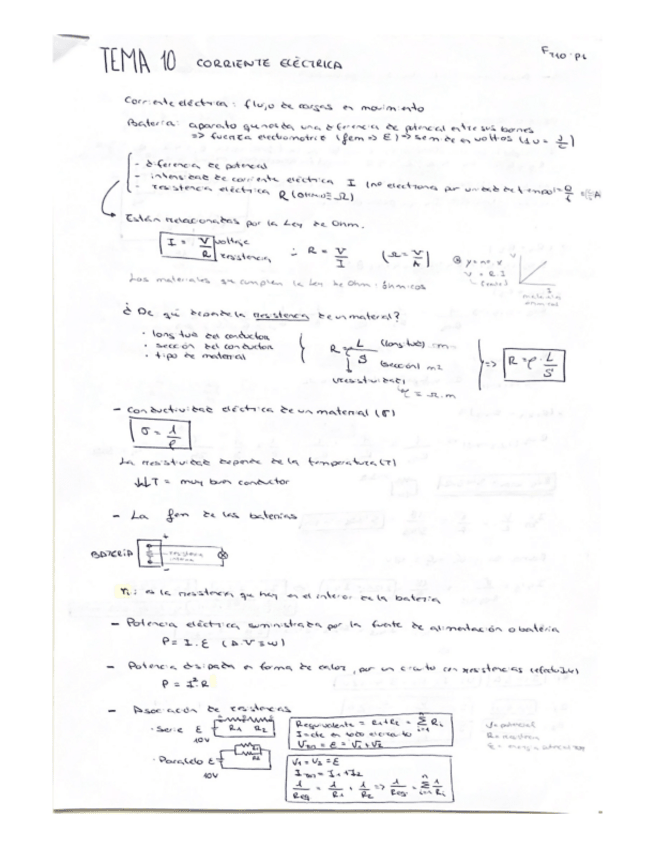 TEMA 10 CORRIENTE ELÉCTRICA
Corriente eléctrica: flujo de cargas en movimiento
Batería: aparato que una diferencia de potencial entre sus bornes
=> fuerza electromotriz (fem => E) => se mide en voltios (1V = J/C)
- diferencia de potencial
- intensidad de corriente eléctrica I (nº electrones por unidad de tiempo)
- resistencia eléctrica R (Ohmio = Ω)
Están relacionadas por la Ley de Ohm.
I = V/R voltaje resistencia ∴ R = V/I (Ω = V/A)
V = R·I
Los materiales que cumplen la Ley de Ohm: óhmicos
¿De qué depende la resistencia de un material?
· longitud del conductor
· sección del conductor
· tipo de material
R = ρ L/S (longitud) (sección) m2 => R = ρ · L/S
resistividad
ρ = Ω.m
- Conductividad eléctrica de un material (σ)
σ = 1/ρ
La resistividad depende de la temperatura (T)
↓↓T = muy buen conductor
- La fem de las baterías
BATERÍA + - resistencia interna
ri: es la resistencia que hay en el interior de la batería
- Potencia eléctrica suministrada por la fuente de alimentación o batería
P = I.E (A.V = W)
- Potencia disipada en forma de calor, por un circuito con resistencias
P = I²R
- Asociación de resistencias
· Serie E 10V R1 R2
Requivalente = R1+R2 = Σ Ri
I = cte en todo el circuito
= E = V1+V2
· Paralelo E 10V R1 R2
V1 = V2 = E
= I1+I2
1/Req = 1/R1 + 1/R2 => 1/Req = Σ 1/Ri